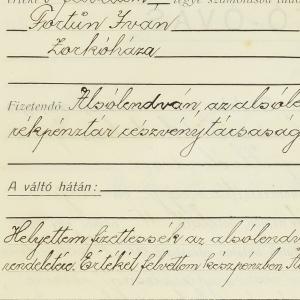 értéke felvétetett tegye számolásba tudó
Fortún Iván
Zorkóháza
Fizetendő Alsólendván, az alsóle
rékpénztár részvénytársaság
A váltó hátán:
Helyettem fizettessék az alsólendv
rendeletére. Értékét felvettem készpénzben. A